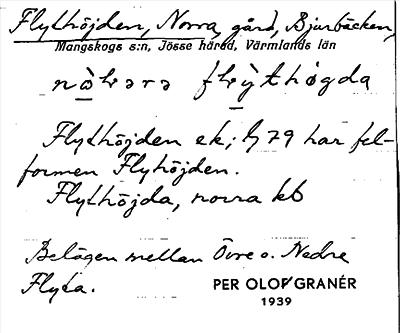 Flythöjden, Norra, gård, Bjurbäcken,
Mangskogs s:n, Jösse härad, Värmlands län
nò̱ꞎəra flỳ̱thøgda
Flythöjden ek; J 79 har fel-
formen Flyhöjden.
Flythöjda, norra kb
Belägen mellan Övre o. Nedre
Flyta.
PER OLOF GRANÉR
1939